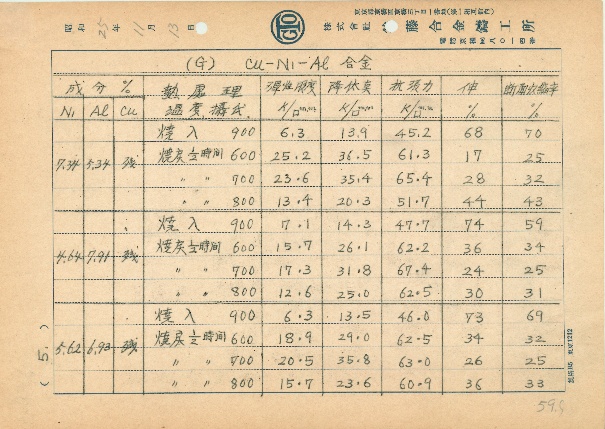 昭和 25 年 11 月 13 日
GTO
株式会社 藤合金工所
(G) Cu-Ni-Al 合金
成分 % 熱処理 弾性限度 降伏点 抗張力 伸 断面収縮率
Ni Al Cu 温度攝氏 K/□ K/□ K/□ % %
焼入 900 6.3 13.9 45.2 68 70
7.34 5.34 残 焼戻 1/2時間 600 25.2 36.5 61.3 17 25
〃 〃 700 23.6 35.4 65.4 28 32
〃 〃 800 13.4 20.3 51.7 44 43
焼入 900 7.1 14.3 47.7 74 59
4.64 7.91 残 焼戻 1/2時間 600 15.7 26.1 62.2 36 34
〃 〃 700 17.3 31.8 67.4 24 25
〃 〃 800 12.6 25.0 62.5 30 31
焼入 900 6.3 13.5 46.0 73 69
5.62 6.93 残 焼戻 1/2時間 600 18.9 29.0 62.5 34 32
〃 〃 700 20.5 35.8 63.0 26 25
〃 〃 800 15.7 23.6 60.9 36 33
(5.)